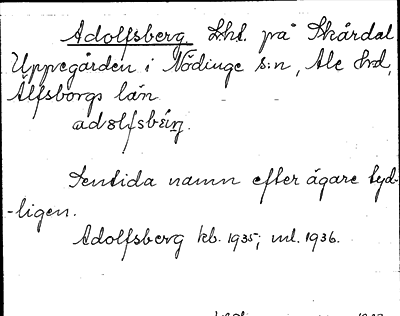 Adolfsberg Lht. på Skårdal
Uppegården i Nödinge s:n, Ale hd,
Älfsborgs län.
Sentida namn efter ägare tyd-
-ligen.
Adolfsberg kb. 1935; ml. 1936.